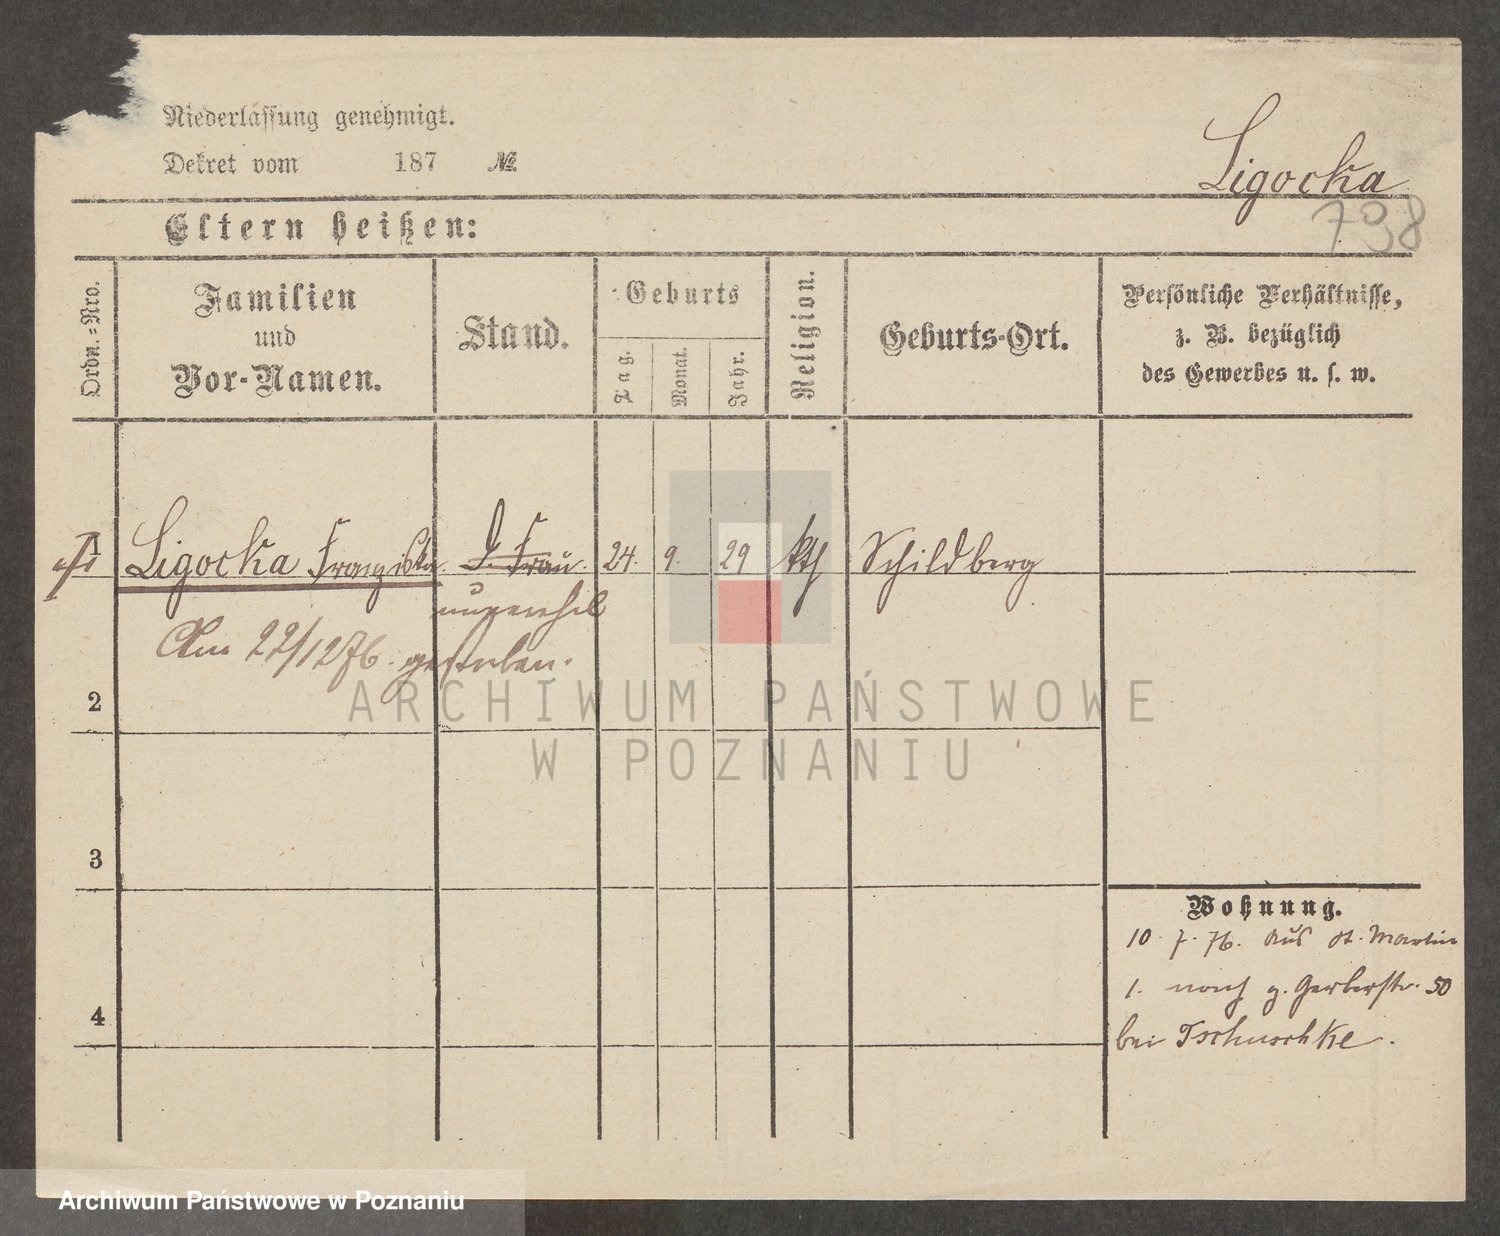 Niederlassung genehmigt.
Dekret vom 187 №
Ligocka
798
Eltern heißen:
Ordn.=Nro.
Familien
und
Vor-Namen.
Stand.
Geburts
Tag.
Monat.
Jahr.
Religion.
Geburts-Ort.
Persönliche Verhältnisse,
z. B. bezüglich
des Gewerbes u. s. w.
1 Ligocka Franziska D. Frau. 24. 9. 29 kth Schildberg
unverehel
Am 22/12 76. gestorben.
2
3
4
Wohnung.
10. 7. 76. Aus St. Martin
1. nach g. Gerberstr. 50
bei Tschuschke.
ARCHIWUM PAŃSTWOWE
W POZNANIU
Archiwum Państwowe w Poznaniu